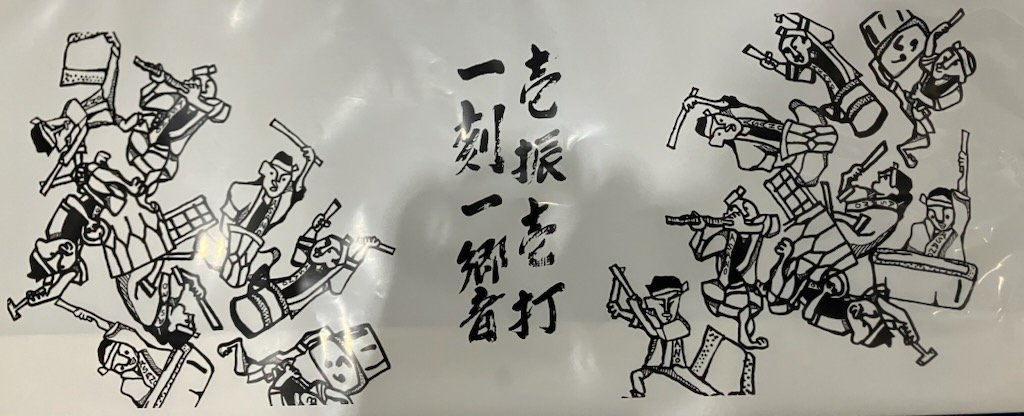 壱振壱打
一刻一響